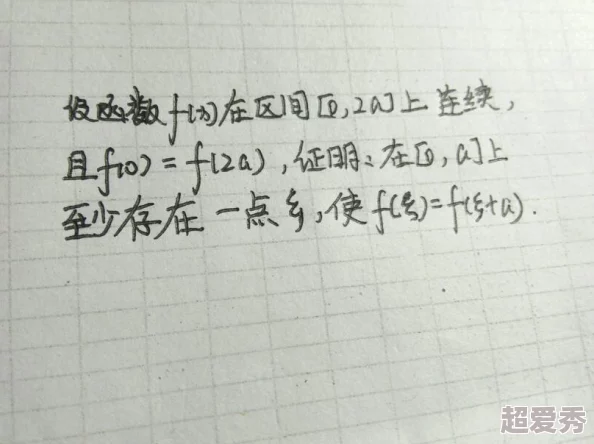 设函数f(x)在区间[0,2a]上连续,
且f(0)=f(2a),证明:在[0,a]上
至少存在一点ξ,使f(ξ)=f(ξ+a).
超爱秀